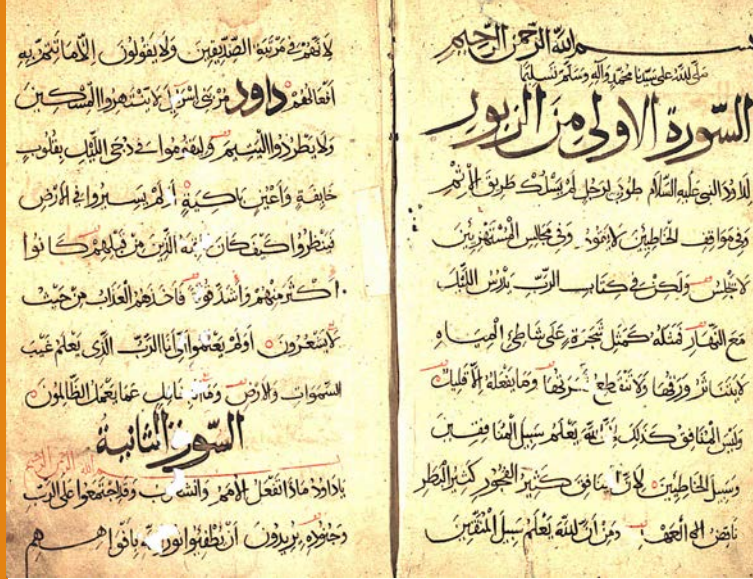 بسم الله الرحمن الرحيم
صلى لله على سيدنا محمد وآله وسلم تسليما
السورة الاولى من الزبور
لداود النبى عليه السلام طوبى لرجل لم يسلك طريق الاثم
وفى مواقف الخاطيين لا يقف وفى مجالس المستهزيين
لا يجلس ولكن فى كتاب الرب يدرس الليل
مع النهار فمثله كمثل شجرة على شاطئ المياه
لا يتناثر ورقها ولا تنقطع ثمرتها وما يفعله الا قليلا
وليس المنافق كذلك الله يعلم سبيل المنافقين
وسبيل الخاطيين لان المنافق كثير الفجور كثير البطر
ناقض العهد ومن ان لله يعلم سبيل المتقين
لانهم فى مرتبة الصديقين ولا يقولون الا ما تتم به
افعالهم داود مر بنى اسرئيل لا ينتهروا المسكين
ولا يطردوا اليتيم وليقوموا فى دجى الليل بقلوب
خايفة واعين باكية أولم يسيروا فى الارض
فينظروا كيف كان الذين من قبلهم كانوا
اكثر منهم واشد قوة فاخذهم العذاب من حيث
لا يشعرون اولم يعلموا انى انا الرب الذى يعلم غيب
السموات والارض عما يعمل الظالمون
السورة الثانية
بسم الله الرحمن الرحيم
ياداود ماذا تفعل الامم والشعوب وقد اجتمعوا على الرب
وجنوده يريدون ان يطفيوا نور بافواههم